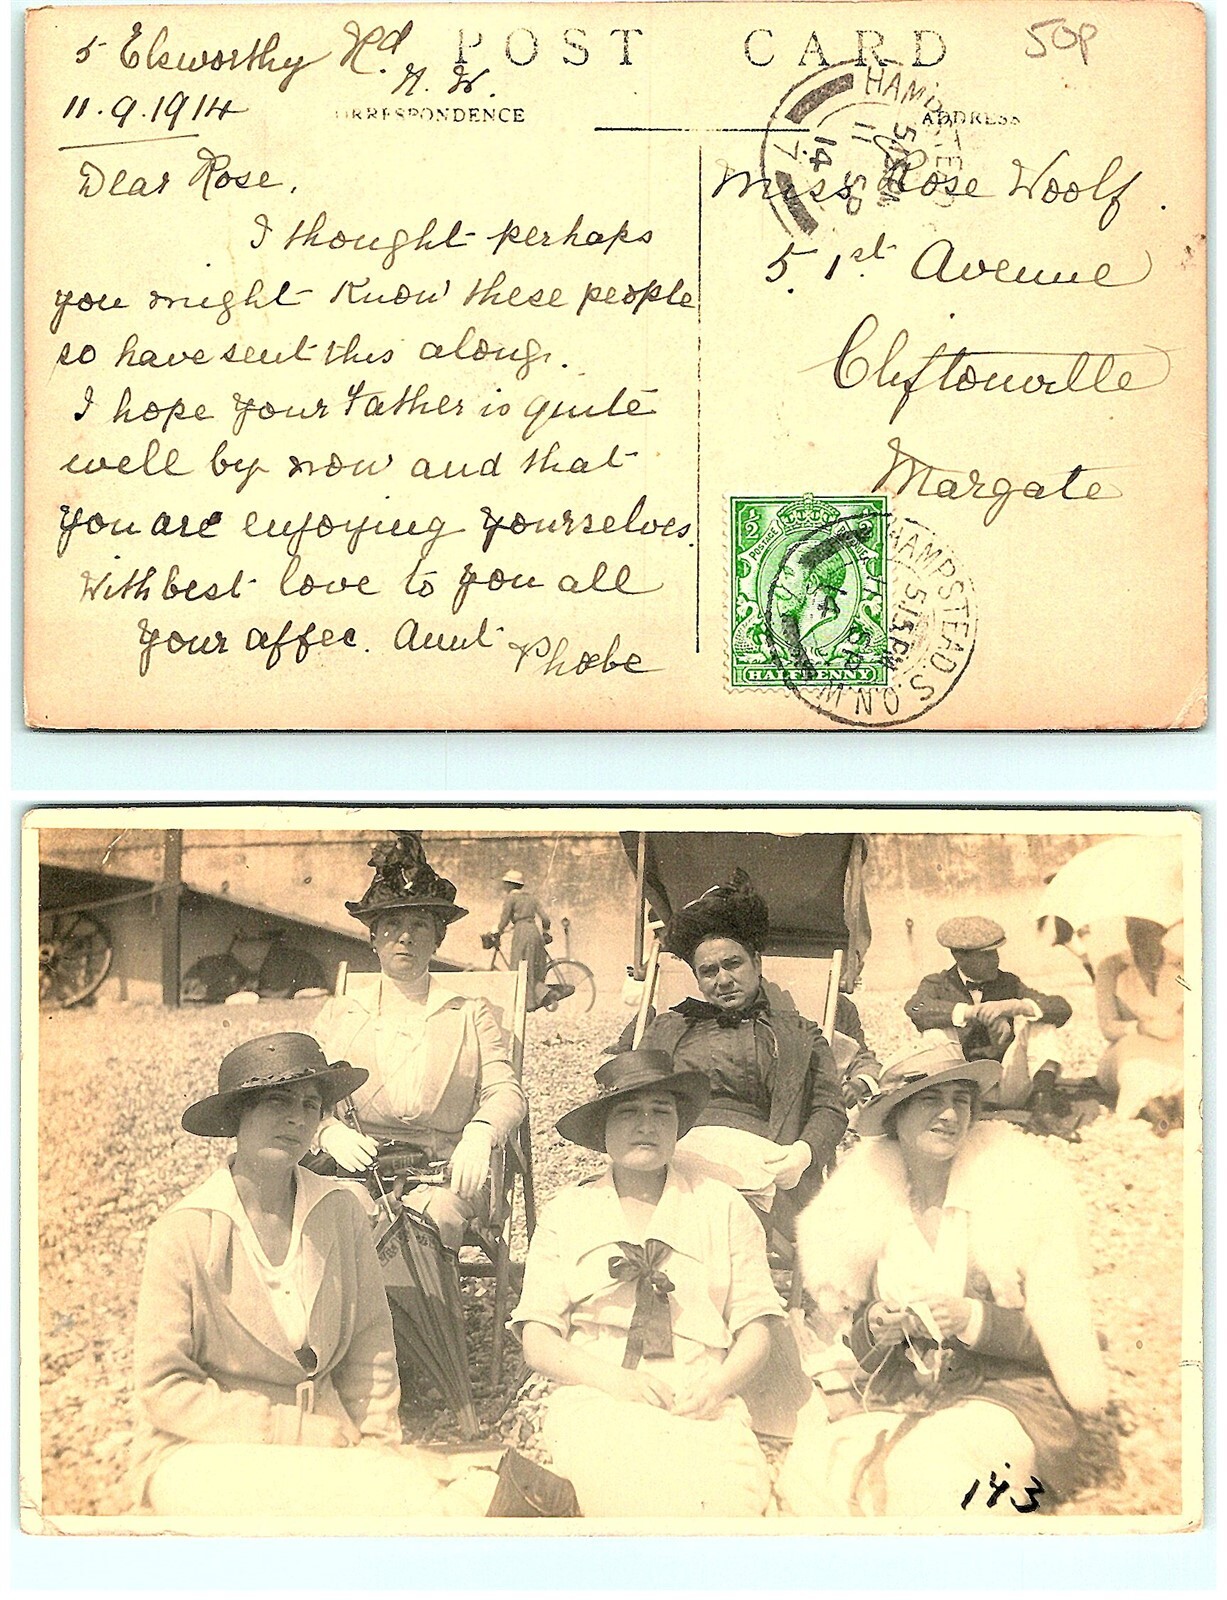 POST CARD
50P
5 Elsworthy Rd.
N.W.
11.9.1914
CORRESPONDENCE
ADDRESS
Dear Rose.
I thought perhaps
you might know these people
so have sent this along.
I hope your Father is quite
well by now and that
you are enjoying yourselves.
With best love to you all
Your affec. Aunt Phœbe
Miss Rose Woolf.
5. 1st Avenue
Cliftonville
Margate
HAMPSTEAD
515PM
11 SP
14
7
POSTAGE REVENUE
½ ½
HALFPENNY
HAMPSTEAD. S.O. N.W.
515PM
11 SP
14
143